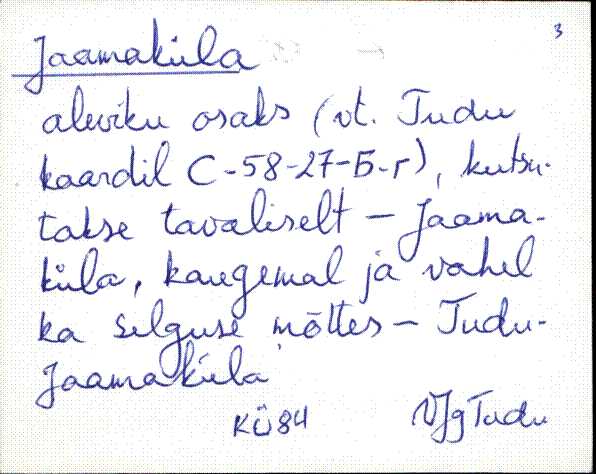 3
Jaamaküla
aleviku osaks (vt. Tudu
kaardil С-58-27-Б-г), kutsu-
takse tavaliselt – Jaama-
küla, kaugemal ja vahel
ka selguse mõttes – Tudu-
Jaamaküla
KÜ84 VJg Tudu